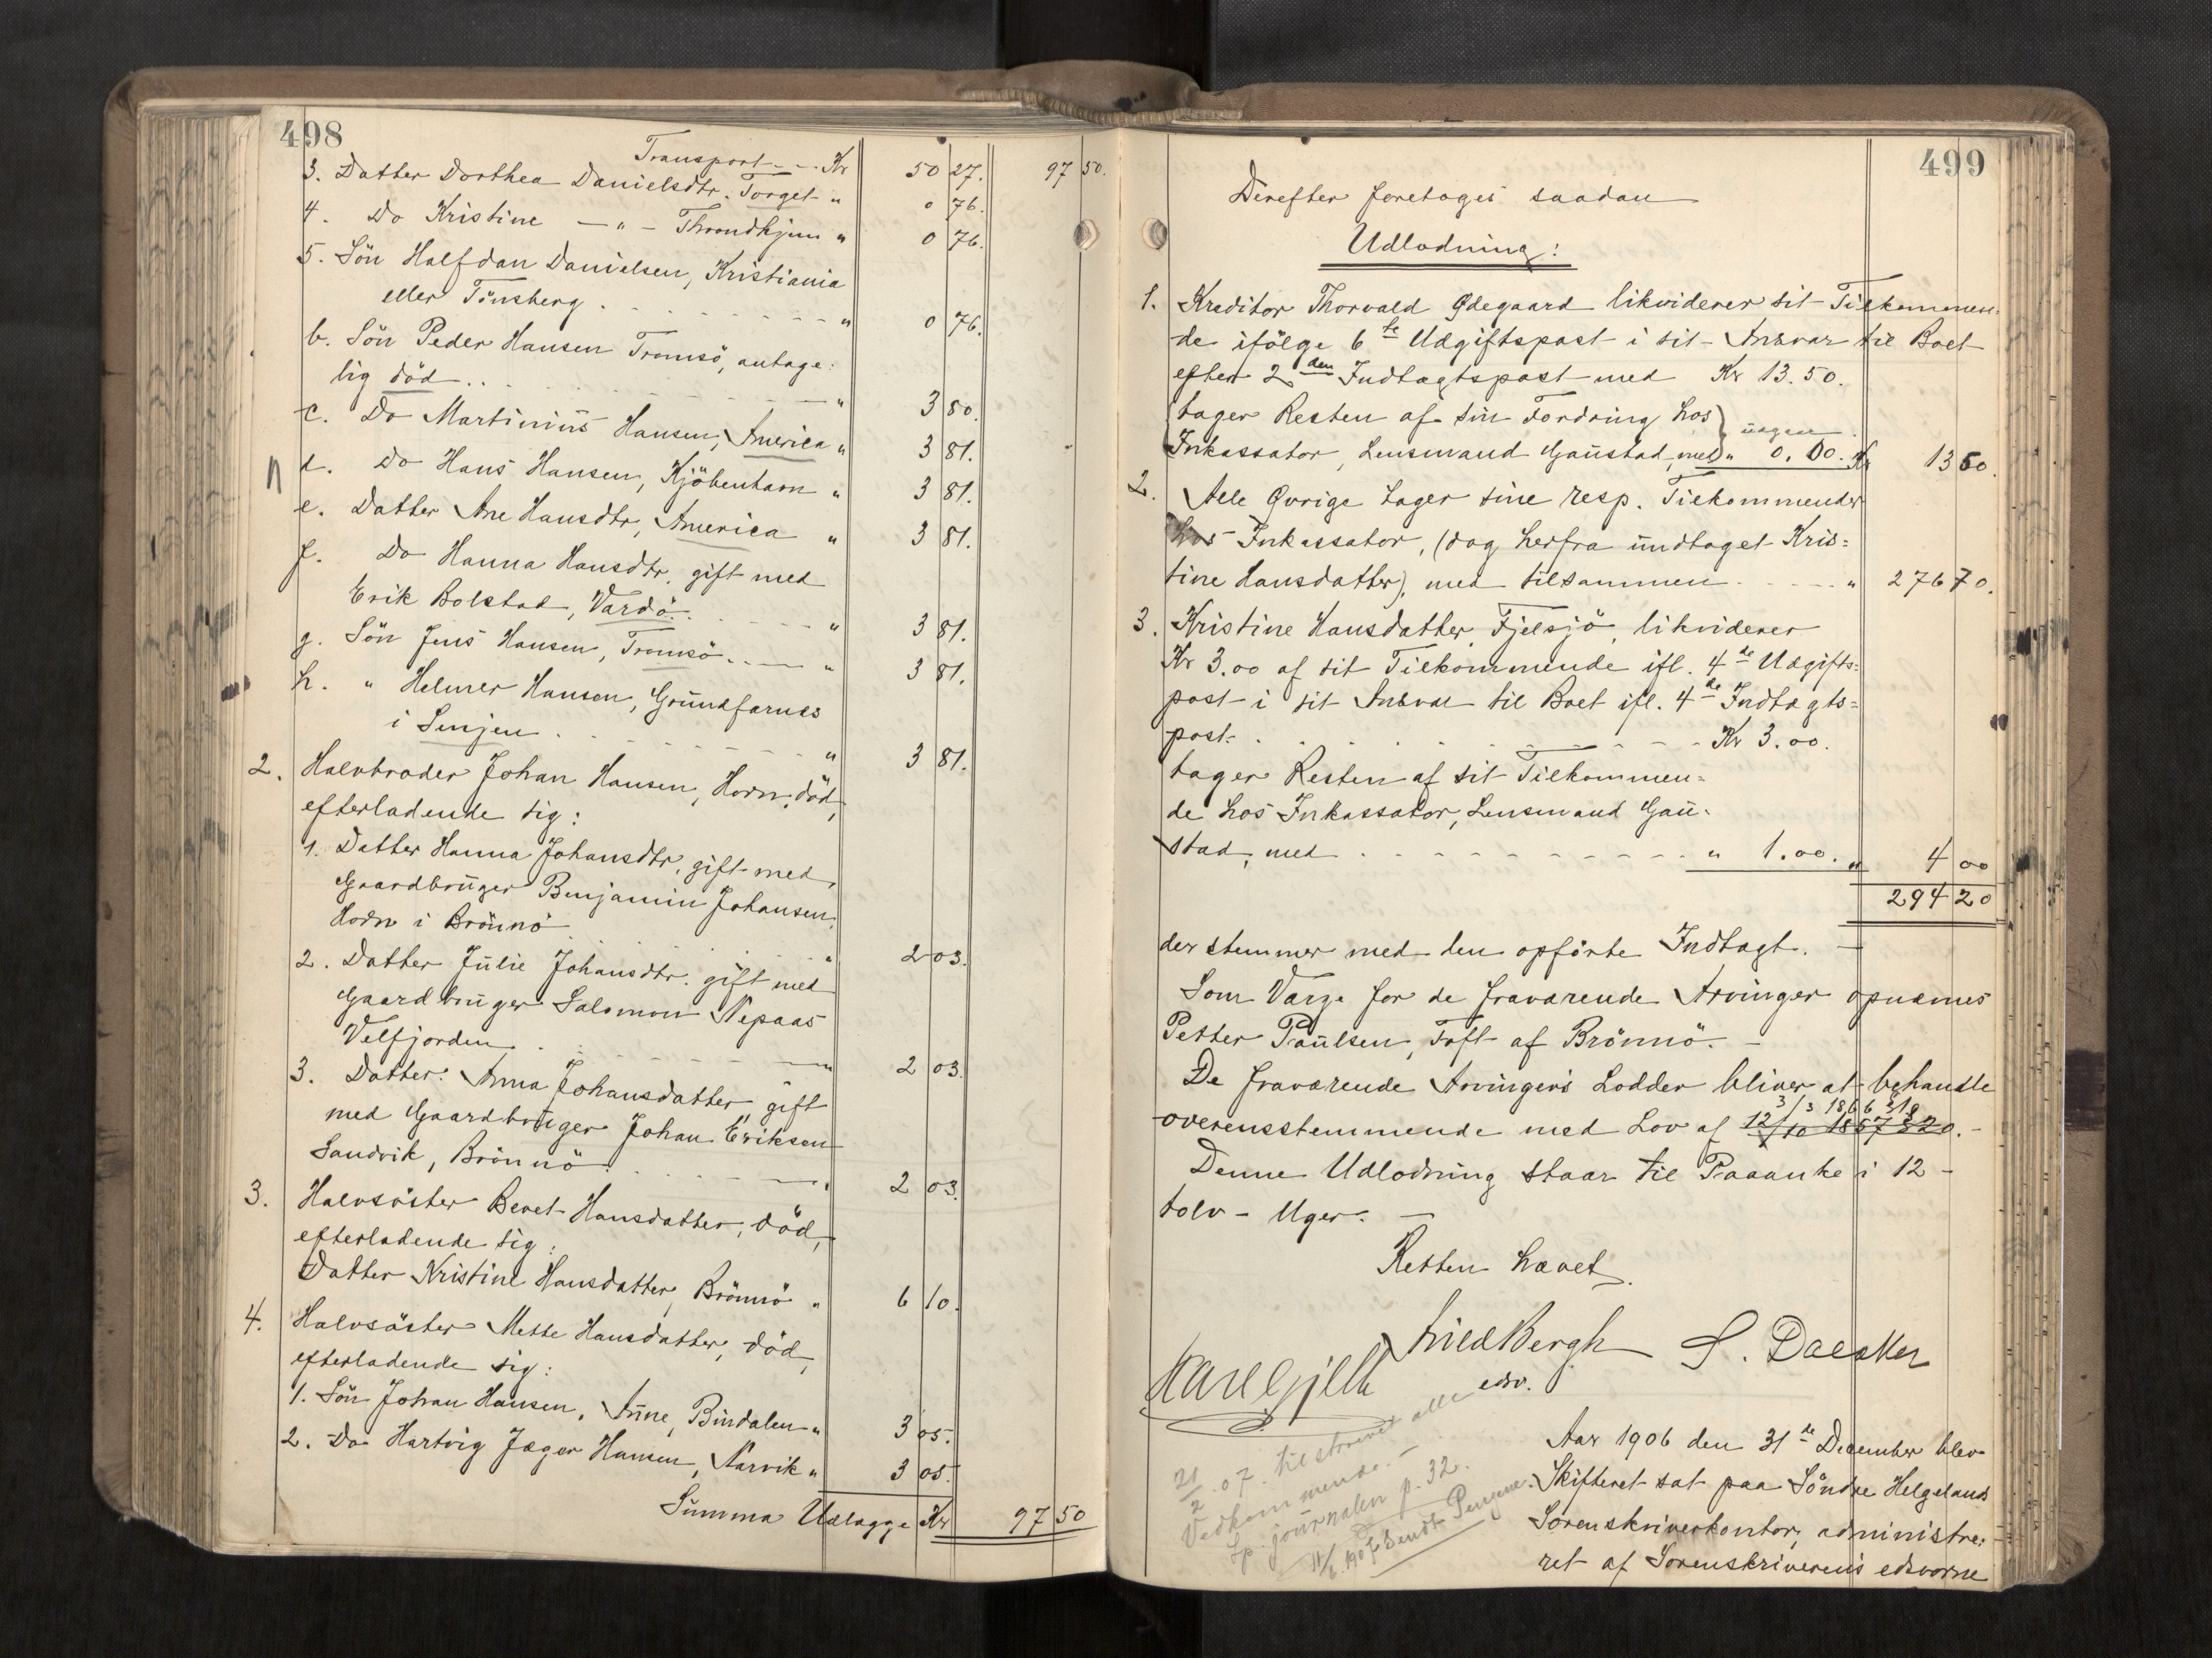 498
Transport - - Kr 50 27. 97 50.
3. Datter Dorthea Danielsdtr. Torget " 0 76.
4. Do Kristine — " — Throndhjem " 0 76.
5. Sön Halfdan Danielsen, Kristiania
eller Tönsberg . " 0 76.
b. Sön Peder Hansen Tromsö, antage:
lig död . . " 3 80.
c. Do Martinius Hansen, America " 3 81.
d. Do Hans Hansen, Kjöbenhavn " 3 81.
e. Datter Ane Hansdtr, America " 3 81.
f. Do Hanna Hansdtr, gift med
Erik Bolstad, Vardö . " 3 81.
g. Sön Jens Hansen, Tromsö . . " 3 81.
h. " Helmer Hansen, Grundfarnes
i Senjen . " 3 81.
2. Halvbroder Johan Hansen, Horn, död,
efterladende sig:
1. Datter Hanna Johansdtr, gift med
Gaardbruger Benjamin Johansen,
Horn i Brönnö . " 2 03.
2. Datter Julie Johansdtr. gift med
Gaardbruger Salomon Nepaas
Velfjorden . " 2 03.
3. Datter: Anna Johansdatter, gift
med Gaardbruger Johan Eriksen
Sandvik, Brönnö . " 2 03.
3. Halvsöster Beret Hansdatter, död,
efterladende sig:
Datter Kristine Hansdatter, Brönnö " 6 10.
4. Halvsöster Mette Hansdatter, död,
efterladende sig:
1. Sön Johan Hansen, Aune, Bindalen " 3 05.
2. Do Hartvig Jæger Hansen, Narvik " 3 05.
Summa Udlægge Kr 97 50
499
Derefter foretoges saadan
Udlodning:
1. Kreditor Thorvald Ødegaard likviderer sit Tilkommen:
de ifölge 6te Udgiftspost i sit Ansvar til Boet
efter 2den Indtægtspost med Kr 13.50.
tager Resten af sin Fordring hos
Inkassator, Lensmand Gaustad, med " 0.00. Kr 13 50.
2. Alle Øvrige tager sine resp. Tilkommender
hos Inkassator, (dog herfra undtaget Kris=
tine Hansdatter), med tilsammen . " 276 70.
3. Kristine Hansdatter, Fjelsjö, likviderer
Kr 3.00 af sit Tilkommende ifl. 4de Udgifts=
post i sit Ansvar til Boet ifl. 4de Indtægts=
post . Kr 3.00.
tager Resten af sit Tilkommen=
de hos Inkassator, Lensmand Gau=
stad, med . " 1.00. " 4 00
294 20
der stemmer med den opförte Indtægt. —
Som Værge for de fraværende Arvinger opnævnes
Petter Paulsen, Toft af Brönnö. —
De fraværende Arvingers Lodder bliver at behandle
3/3 1866 §18
overensstemmende med Lov af 12/10 1857 §20. —
Denne Udlodning staar til Paaanke i 12 —
tolv — Uger. —
Retten hævet.
edsv.
21/2.07. tilskrevet alle
Vedkommende. —
Sp. journalen p. 32.
11/6 1907 Sendt Pengene.
Aar 1906 den 31te December blev
Skifteret sat paa Söndre Helgelands
Sorenskriverkontor, administre:
ret af Sorenskriverens edsvorne